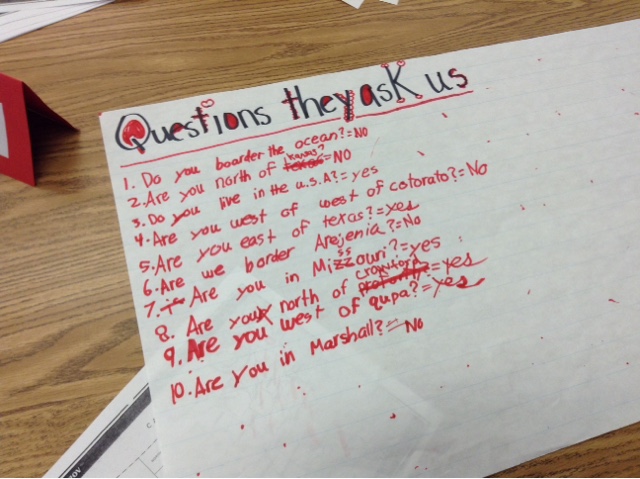 Questions they ask us
1. Do you boarder the ocean?=NO
2. Are you north of kansas?=NO
3. Do you live in the u.s.A?=yes
4. Are you west of west of cotorato?=No
5. Are you east of texas?=yes
6. Are we border Arejenia?=No
7. Are you in Missouri?=yes
8. Are you north of crowford=yes
9. Are you west of qupa?=yes
10. Are you in Marshall?=No